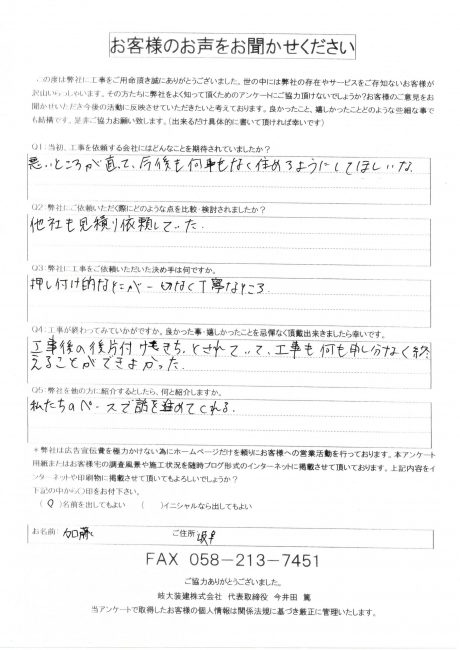 お客様のお声をお聞かせください
この度は弊社に工事をご用命頂き誠にありがとうございました。世の中には弊社の存在やサービスをご存知ないお客様が
沢山いらっしゃいます。その方たちに弊社をよく知って頂くためのアンケートにご協力頂けないでしょうか？お客様のご意見をお
聞かせいただき今後の活動に反映させていただきたいと考えております。良かったこと、嬉しかったことどのような些細な事で
も結構です。是非ご協力お願い致します。（出来るだけ具体的に書いて頂ければ幸いです）
Q1:当初、工事を依頼する会社にはどんなことを期待されていましたか？
悪いところが直って、今後も何事もなく住めるようにしてほしいな
Q2:弊社にご依頼いただく際にどのような点を比較・検討されましたか？
他社も見積り依頼していた.
Q3:弊社に工事をご依頼いただいた決め手は何ですか。
押し付け的なとこが一切なく丁寧なところ.
Q4:工事が終わってみていかがですか。良かった事・嬉しかったことを忌憚なく頂戴出来きましたら幸いです。
工事後の後片付けもきちっとされていて、工事も何も申し分なく終
えることができよかった.
Q5:弊社を他の方に紹介するとしたら、何と紹介しますか。
私たちのペースで話を進めてくれる.
＊弊社は広告宣伝費を極力かけない為にホームページだけを頼りにお客様への営業活動を行っております。本アンケート
用紙またはお客様宅の調査風景や施工状況を随時ブログ形式のインターネットに掲載させて頂いております。上記内容をイ
ンターネットや印刷物に掲載させて頂いてもよろしいでしょうか？
下記の中から〇印をお付下さい。
（〇）名前を出してもよい （ ）イニシャルなら出してもよい
お名前: 加藤 ご住所:
FAX 058－213－7451
ご協力ありがとうございました。
岐大装建株式会社 代表取締役 今井田 篤
当アンケートで取得したお客様の個人情報は関係法規に基づき厳正に管理いたします。